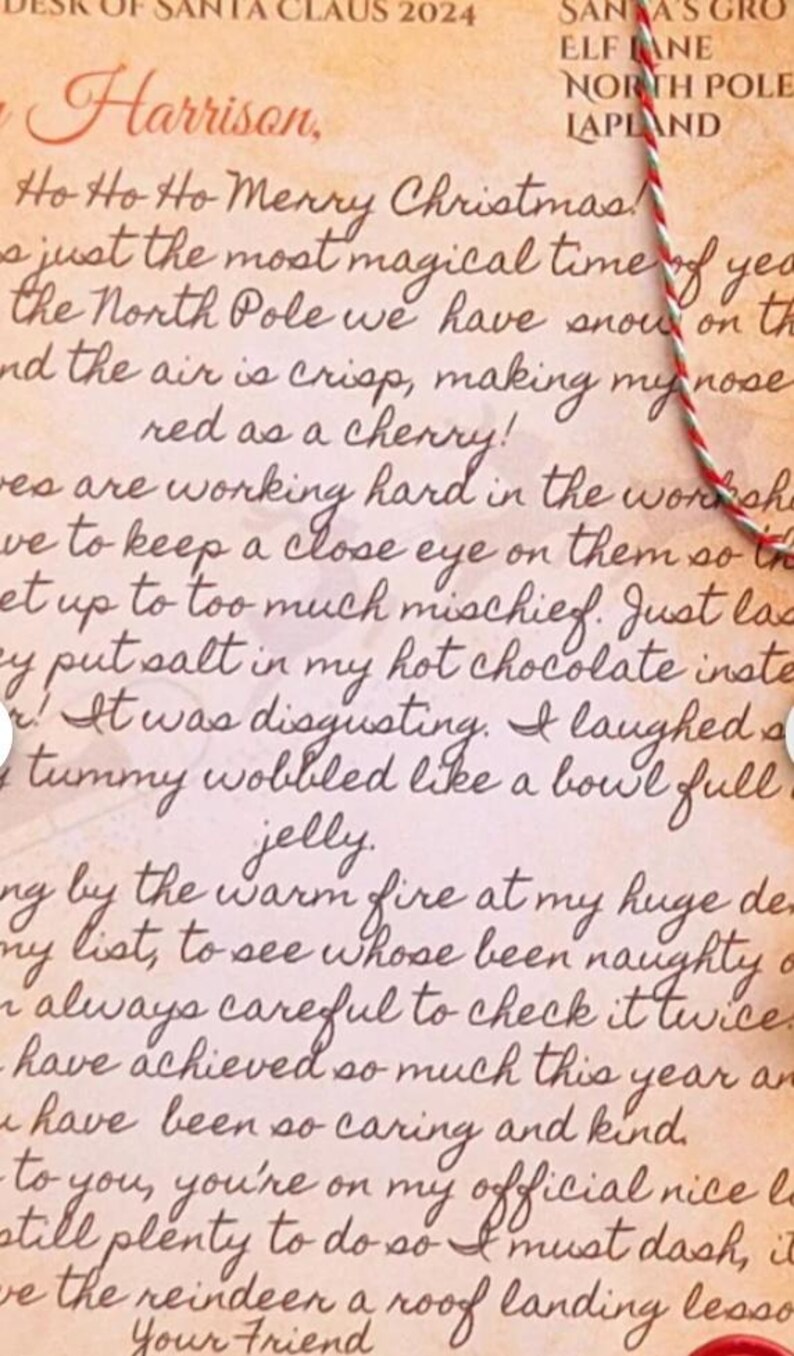 DESK OF SANTA CLAUS 2024
SANTA'S GRO
ELF LANE
NORTH POLE
LAPLAND
Harrison,
Ho Ho Ho Merry Christmas!
s just the most magical time of yea
the North Pole we have snow on th
nd the air is crisp, making my nose
red as a cherry!
ves are working hard in the worksho
ve to keep a close eye on them so th
et up to too much mischief. Just las
ey put salt in my hot chocolate inste
r! It was disgusting. I laughed s
y tummy wobbled like a bowl full
jelly.
ng by the warm fire at my huge de
my list, to see whose been naughty o
always careful to check it twice.
have achieved so much this year an
u have been so caring and kind.
to you, you're on my official nice li
still plenty to do so I must dash, it
ve the reindeer a roof landing lesso
Your Friend